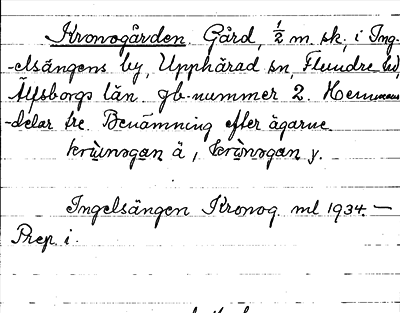 Kronogården. Gård, 1/2 m sk, i Ing-
-elsängens by, Upphärad sn, Flundre hd,
Älfsborgs län. jb-nummer 2. Hemmans
-delar tre. Benämning efter ägarne.
krùnogan ä, krùnogan y.
Ingelsängen Kronog. ml 1934. —
Prep i.